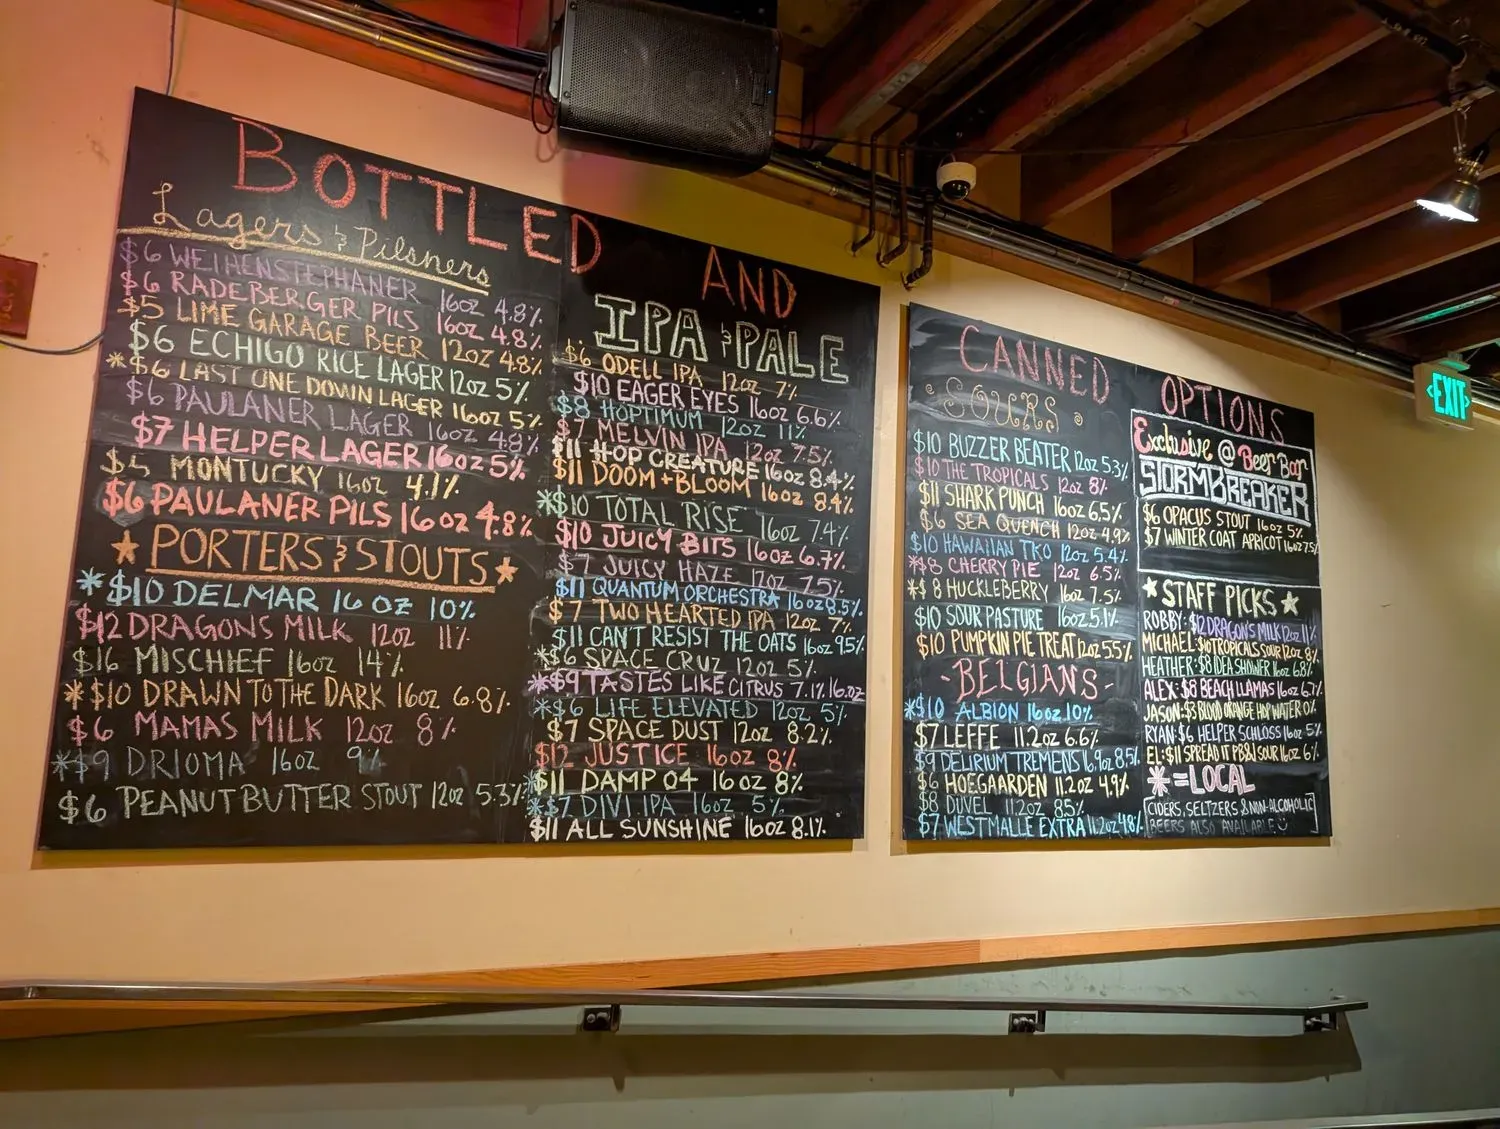 BOTTLED AND
Lagers & Pilsners
$6 WEIHENSTEPHANER 16oz 4.8%
$6 RADEBERGER PILS 16oz 4.8%
$5 LIME GARAGE BEER 12oz 4.8%
$6 ECHIGO RICE LAGER 12oz 5%
*$6 LAST ONE DOWN LAGER 16oz 5%
$6 PAULANER LAGER 16oz 4.8%
$7 HELPER LAGER 16oz 5%
$5 MONTUCKY 16oz 4.1%
$6 PAULANER PILS 16oz 4.8%
★ PORTERS & STOUTS ★
*$10 DELMAR 16 OZ 10%
$12 DRAGONS MILK 12oz 11%
$16 MISCHIEF 16oz 14%
*$10 DRAWN TO THE DARK 16oz 6.8%
$6 MAMAS MILK 12oz 8%
*$9 DRIOMA 16oz 9%
$6 PEANUT BUTTER STOUT 12oz 5.3%
IPA & PALE
$6 ODELL IPA 12oz 7%
$10 EAGER EYES 16oz 6.6%
$8 HOPTIMUM 12oz 11%
$7 MELVIN IPA 12oz 7.5%
$11 HOP CREATURE 16oz 8.4%
$11 DOOM + BLOOM 16oz 8.4%
*$10 TOTAL RISE 16oz 7.4%
$10 JUICY BITS 16oz 6.7%
$7 JUICY HAZE 12oz 7.5%
$11 QUANTUM ORCHESTRA 16oz 8.5%
$7 TWO HEARTED IPA 12oz 7%
$11 CAN'T RESIST THE OATS 16oz 9.5%
*$6 SPACE CRUZ 12oz 5%
*$9 TASTES LIKE CITRUS 7.1% 16.oz
*$6 LIFE ELEVATED 12oz 5%
$7 SPACE DUST 12oz 8.2%
$12 JUSTICE 16oz 8%
*$11 DAMP 04 16oz 8%
*$7 DIVI IPA 16oz 5%
$11 ALL SUNSHINE 16oz 8.1%
CANNED OPTIONS
SOURS
$10 BUZZER BEATER 12oz 5.3%
$10 THE TROPICALS 12oz 8%
$11 SHARK PUNCH 16oz 6.5%
$6 SEA QUENCH 12oz 4.9%
$10 HAWAIIAN TKO 12oz 5.4%
*$8 CHERRY PIE 12oz 6.5%
*$8 HUCKLEBERRY 16oz 7.5%
$10 SOUR PASTURE 16oz 5.1%
$10 PUMPKIN PIE TREAT 12oz 5.5%
-BELGIANS-
*$10 ALBION 16oz 10%
$7 LEFFE 11.2oz 6.6%
$9 DELIRIUM TREMENS 16.9oz 8.5%
$6 HOEGAARDEN 11.2oz 4.9%
$8 DUVEL 11.2oz 8.5%
$7 WESTMALLE EXTRA 11.2oz 4.8%
Exclusive @ Beer Bar
STORMBREAKER
$6 OPACUS STOUT 16oz 5%
$7 WINTER COAT APRICOT 16oz 7.5%
★ STAFF PICKS ★
ROBBY: $12 DRAGONS MILK 12oz 11%
MICHAEL: $10 TROPICALS SOUR 12oz 8%
HEATHER: $8 IDEA SHOWER 16oz 6.8%
ALEX: $8 BEACH LLAMAS 16oz 6.7%
JASON: $5 BLOOD ORANGE HOP WATER 0%
RYAN: $6 HELPER SCHLOSS 16oz 5%
EL: $11 SPREAD IT PB&J SOUR 16oz 6%
* = LOCAL
CIDERS, SELTZERS & NON-ALCOHOLIC
BEERS ALSO AVAILABLE
EXIT